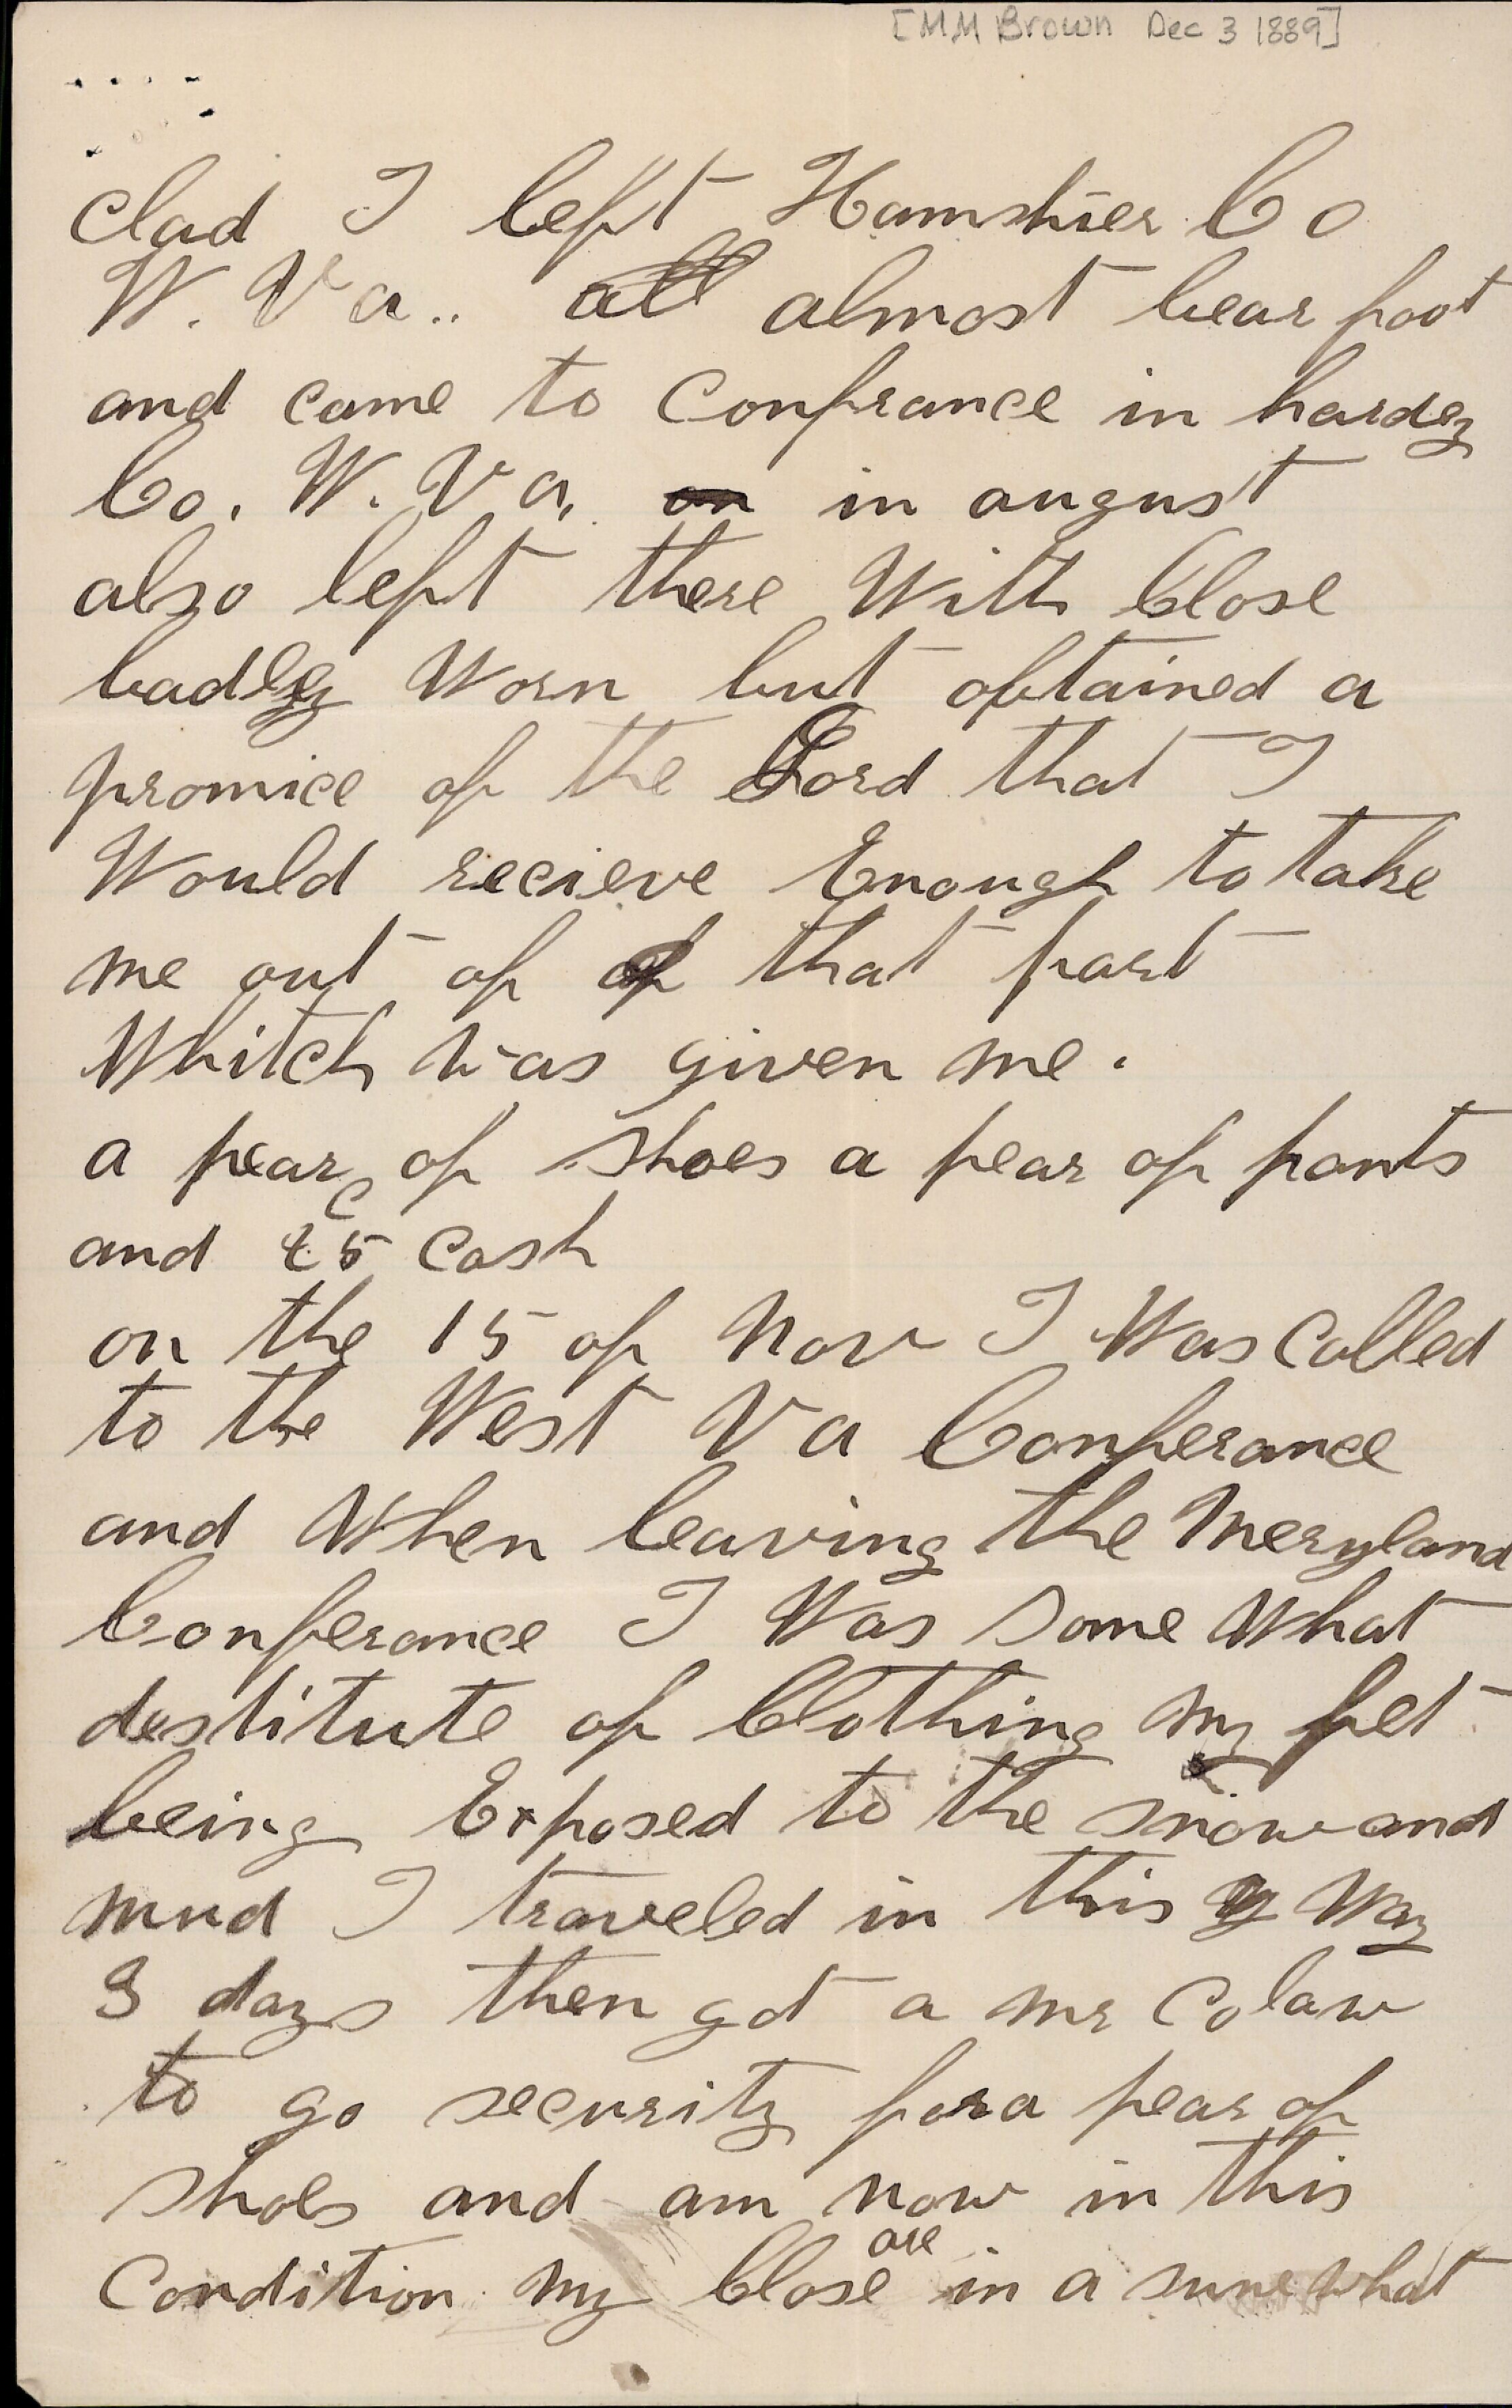 [MM Brown Dec 3 1889]
Clad I left Hamshier Co
W. Va.. all almost bear foot
and came to Confrance in hardy
Co. W. Va, on in august
also left there With Close
badly Worn but obtained a
promice of the Lord that I
Would recieve Enough to take
me out of of that part
Whitch was given me.
a pear of shoes a pear of pants
and 25 c cash
on the 15 of Nov I Was Called
to the West Va Conferance
and When leaving the Meryland
Conferance I Was some What
destitute of Clothing my fet
being Exposed to the snow and
mud I traveled in this y Way
3 days then got a mr Colaw
to go security for a pear of
shoes and am now in this
Condition my Close are in a sune what